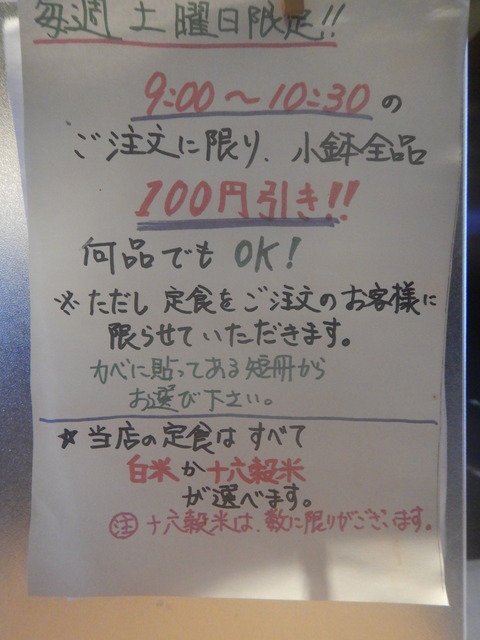 毎週土曜日限定!!
9:00〜10:30の
ご注文に限り、小鉢全品
100円引き!!
何品でもOK!
※ただし定食をご注文のお客様に
限らせていただきます。
カベに貼ってある短冊から
お選び下さい。
☆当店の定食はすべて
白米か十六穀米
が選べます。
注 十六穀米は、数に限りがございます。